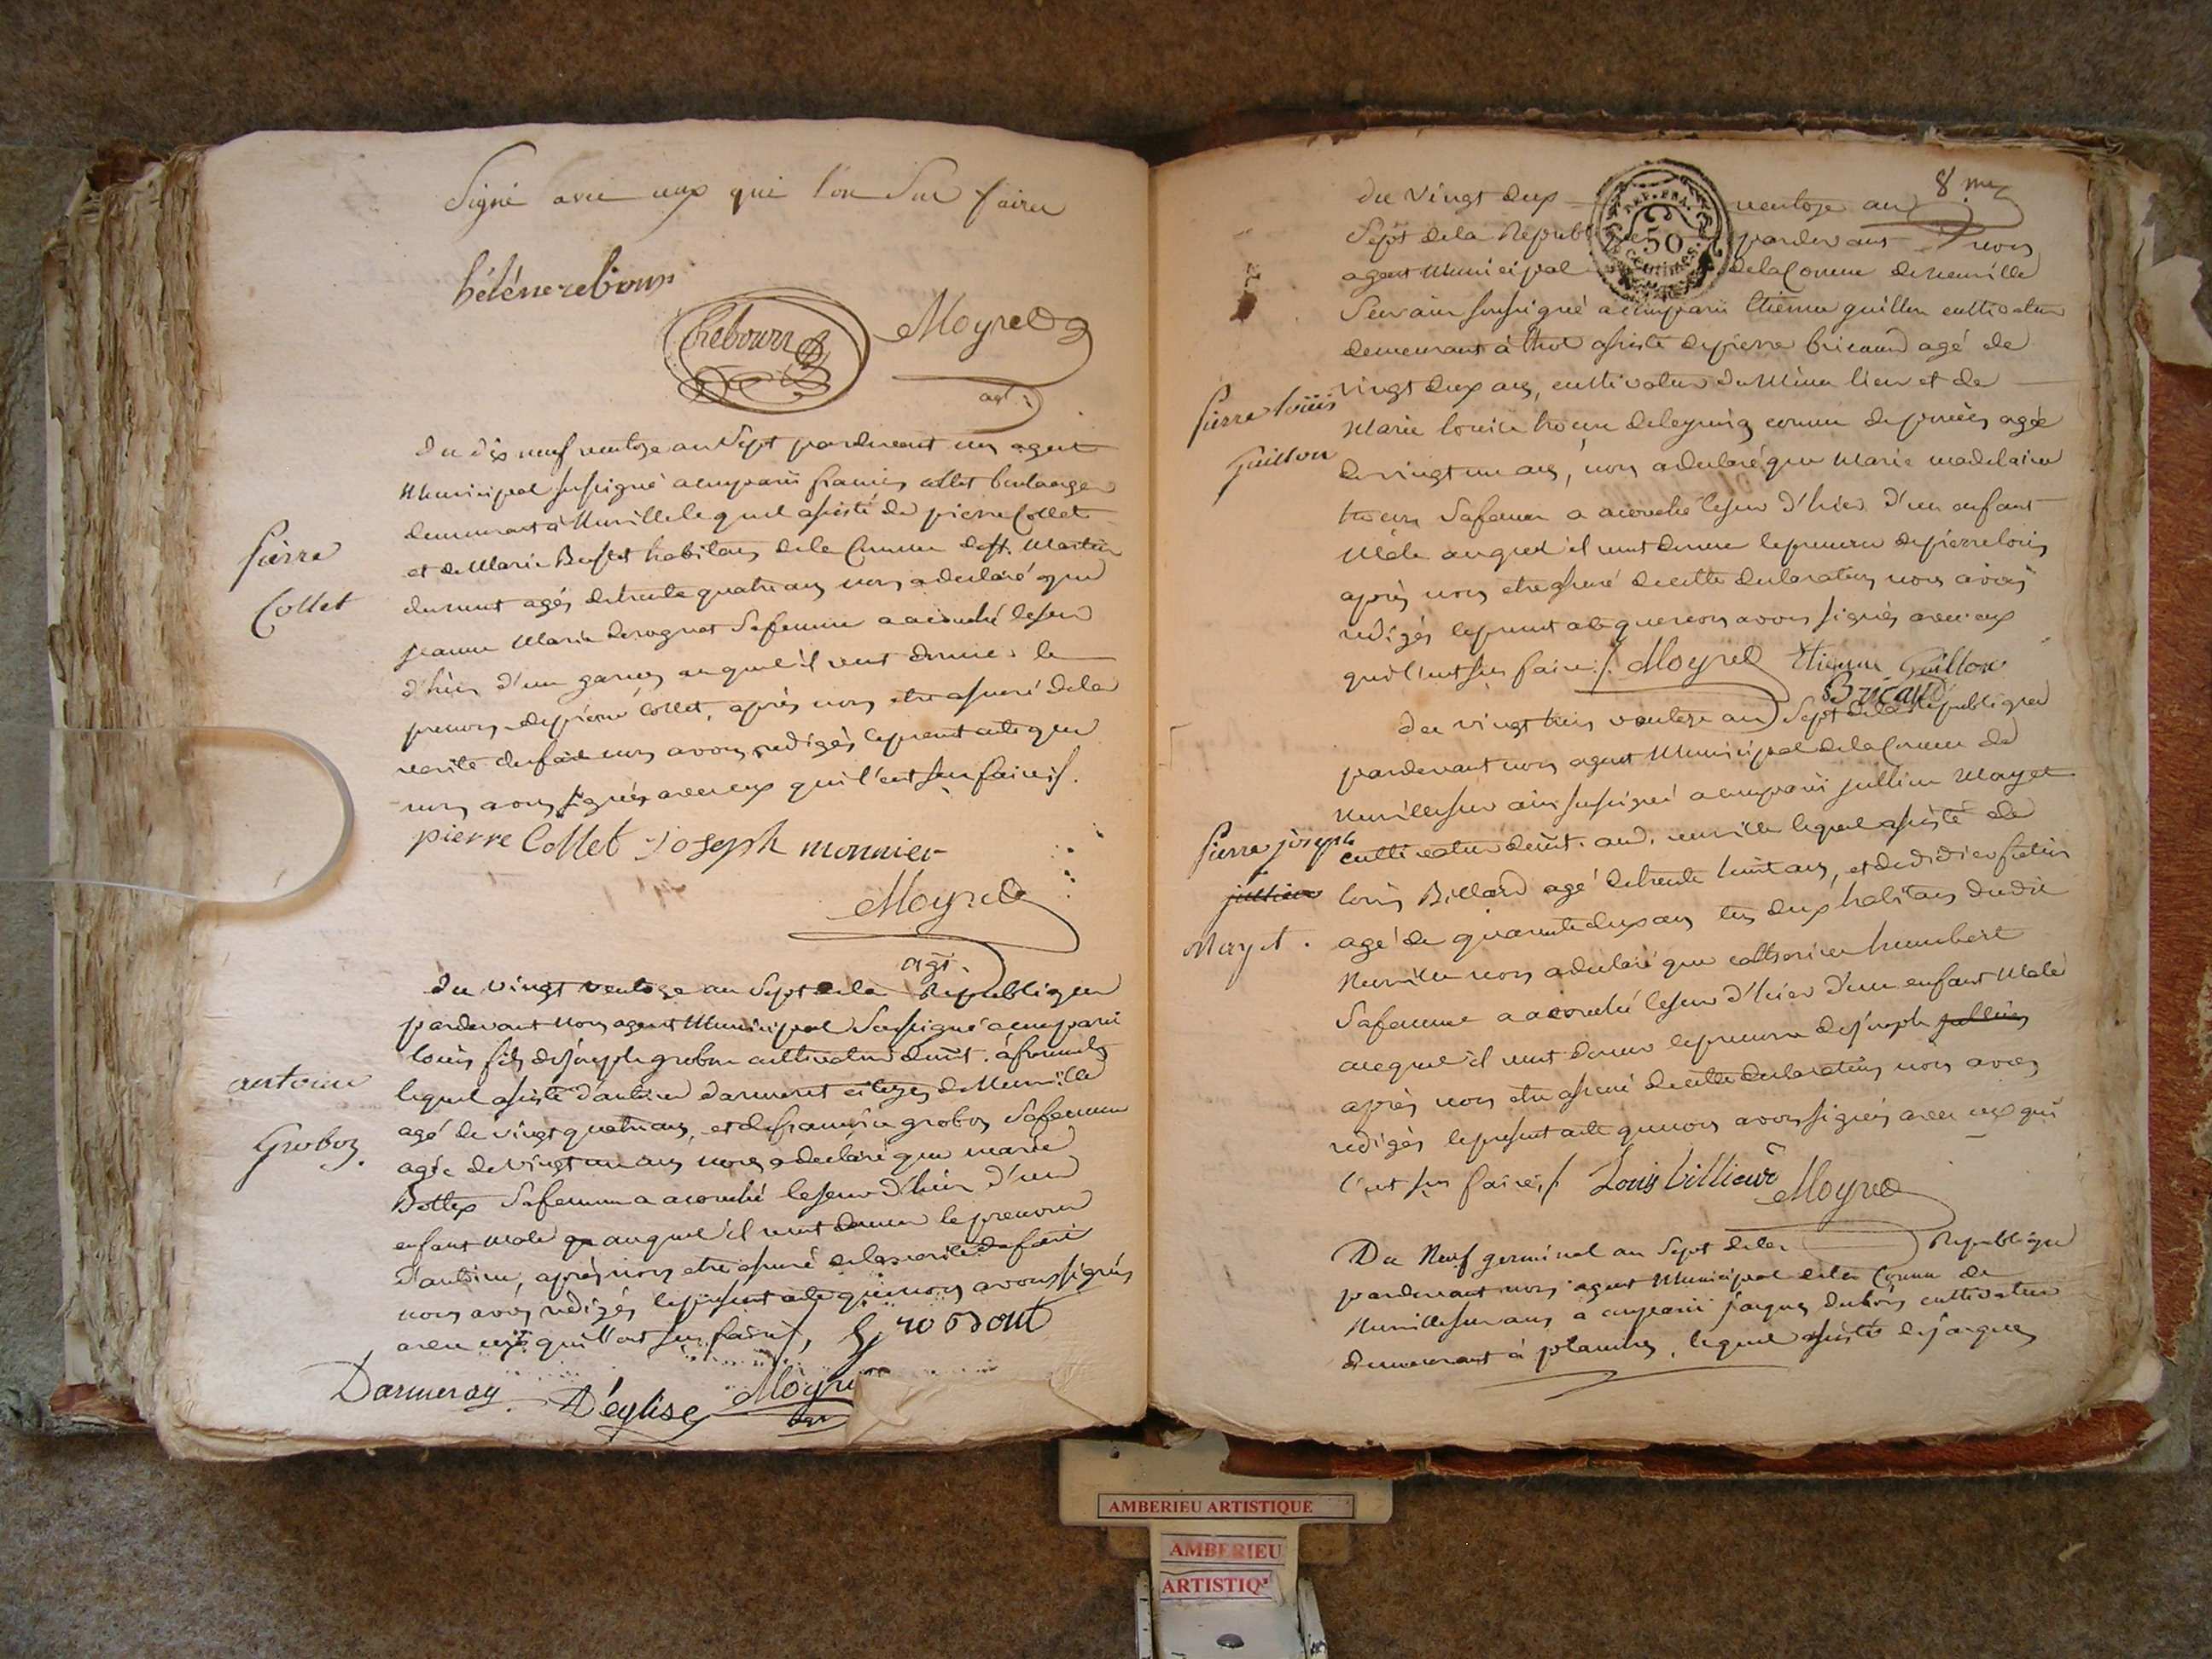 Signé avec eux qui l'on Sue faire
hélène rebours
Chebourx
Moyret
agt.
Du dix neuf ventose an Sept pardevant nous agent
Municipal soussigné a comparu françois collet boulanger
demeurant à Neuville lequel assisté de pierre Collet
et de Marie habitans de la Commune de St. Martin
du mont agés de trente quatre ans nous a declaré que
jeanne Marie Sa femme a acouché le jour
d'hier d'un garçon auquel il veut donner le
prenom de pierre Collet, après nous etre assuré de la
verité du fait nous avons redigés le present acte que
nous avons signés avec eux qui l'ont su faire
pierre
Collet
pierre Collet joseph monnier
Moyret
agt.
Du vingt ventose an Sept de la Republique
pardevant Nous agent Municipal Soussigné a comparu
louis fils de joseph grobon cultivateur demt. à
lequel assisté d'antoine darmeret de Neuville
agé de vingt quatre ans, et de françoise grobos Sa femme
agée de vingt un ans nous a declaré que marie
Bottex Sa femme a acouché le jour d'hier d'un
enfant male auquel il veut donner le prenom
d'antoine, après nous etre assuré de la verité du fait
nous avons redigés le present acte que nous avons signés
avec eux qui l'ont su faire,
antoine
Groboz.
Darmeray
D'eglise
Moyre
8 me
REP. FRA.
50
CENTIMES
Du vingt deux ventose an
Sept de la Republique pardevant nous
agent Municipal de la Comune de neuville
Sur ain soussigné a comparu Etienne guillon cultivateur
demeurant à thol assisté de pierre bricaud agé de
vingt deux ans, cultivateur du Même lieu et de
Marie louise comune de agée
de vingt un ans, nous a declaré que Marie madelaine
Sa femme a acouché le jour d'hier d'un enfant
Mâle auquel il veut donner le prenom de pierre louis
après nous etre assuré de cette declaration nous avons
redigés le present acte que nous avons signés avec eux
qui l'ont su faire ./. Moyret Etienne Guillon
Bricaud
pierre loüis
Guillon
Du vingt trois ventose an Sept de la Republique
pardevant nous agent Municipal de la Comune de
Neuville sur ain soussigné a comparu jullien Mayet
cultivateur demt. aud. neuville lequel assisté de
louis Billard agé de trente huit ans, et de didier
agé de quarante deux ans tous deux habitans dudit
Neuville nous a declaré que catherine humbert
Sa femme a acouché le jour d'hier d'un enfant Male
auquel il veut donner le prenom de joseph jullien
après nous etre assuré de cette declaration nous avons
redigés le present acte que nous avons signés avec eux qui
l'ont su faire ./. Louis billiard Moyret
pierre joseph
jullien
Mayet.
Du Neuf germinal an Sept de la Republique
pardevant nous agent Municipal de la Comune de
Neuville sur ain a comparu jacques dubois cultivateur
demeurant à planches, lequel assisté de jacques
AMBERIEU ARTISTIQUE
AMBERIEU
ARTISTIQ